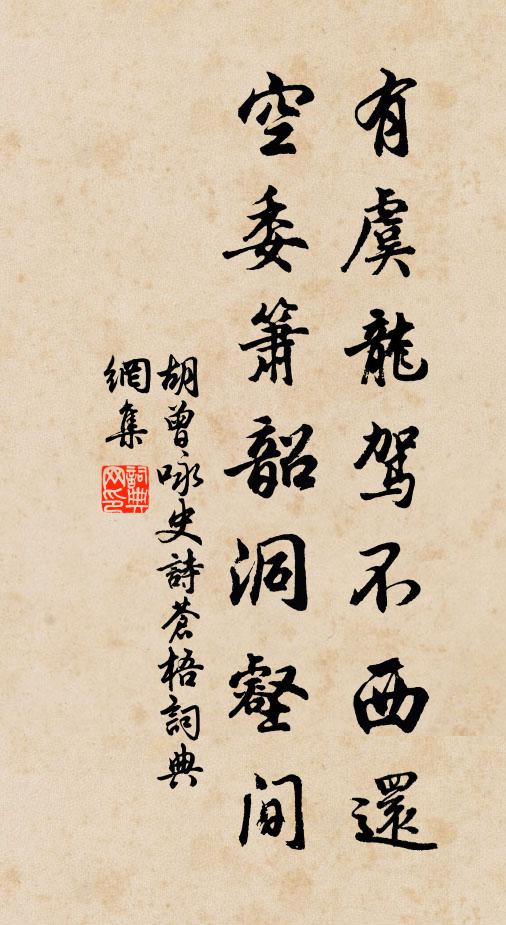 有虞龍駕不西還
空委簫韶洞壑間
胡曾咏史詩蒼梧詞典
網集
詞典網印